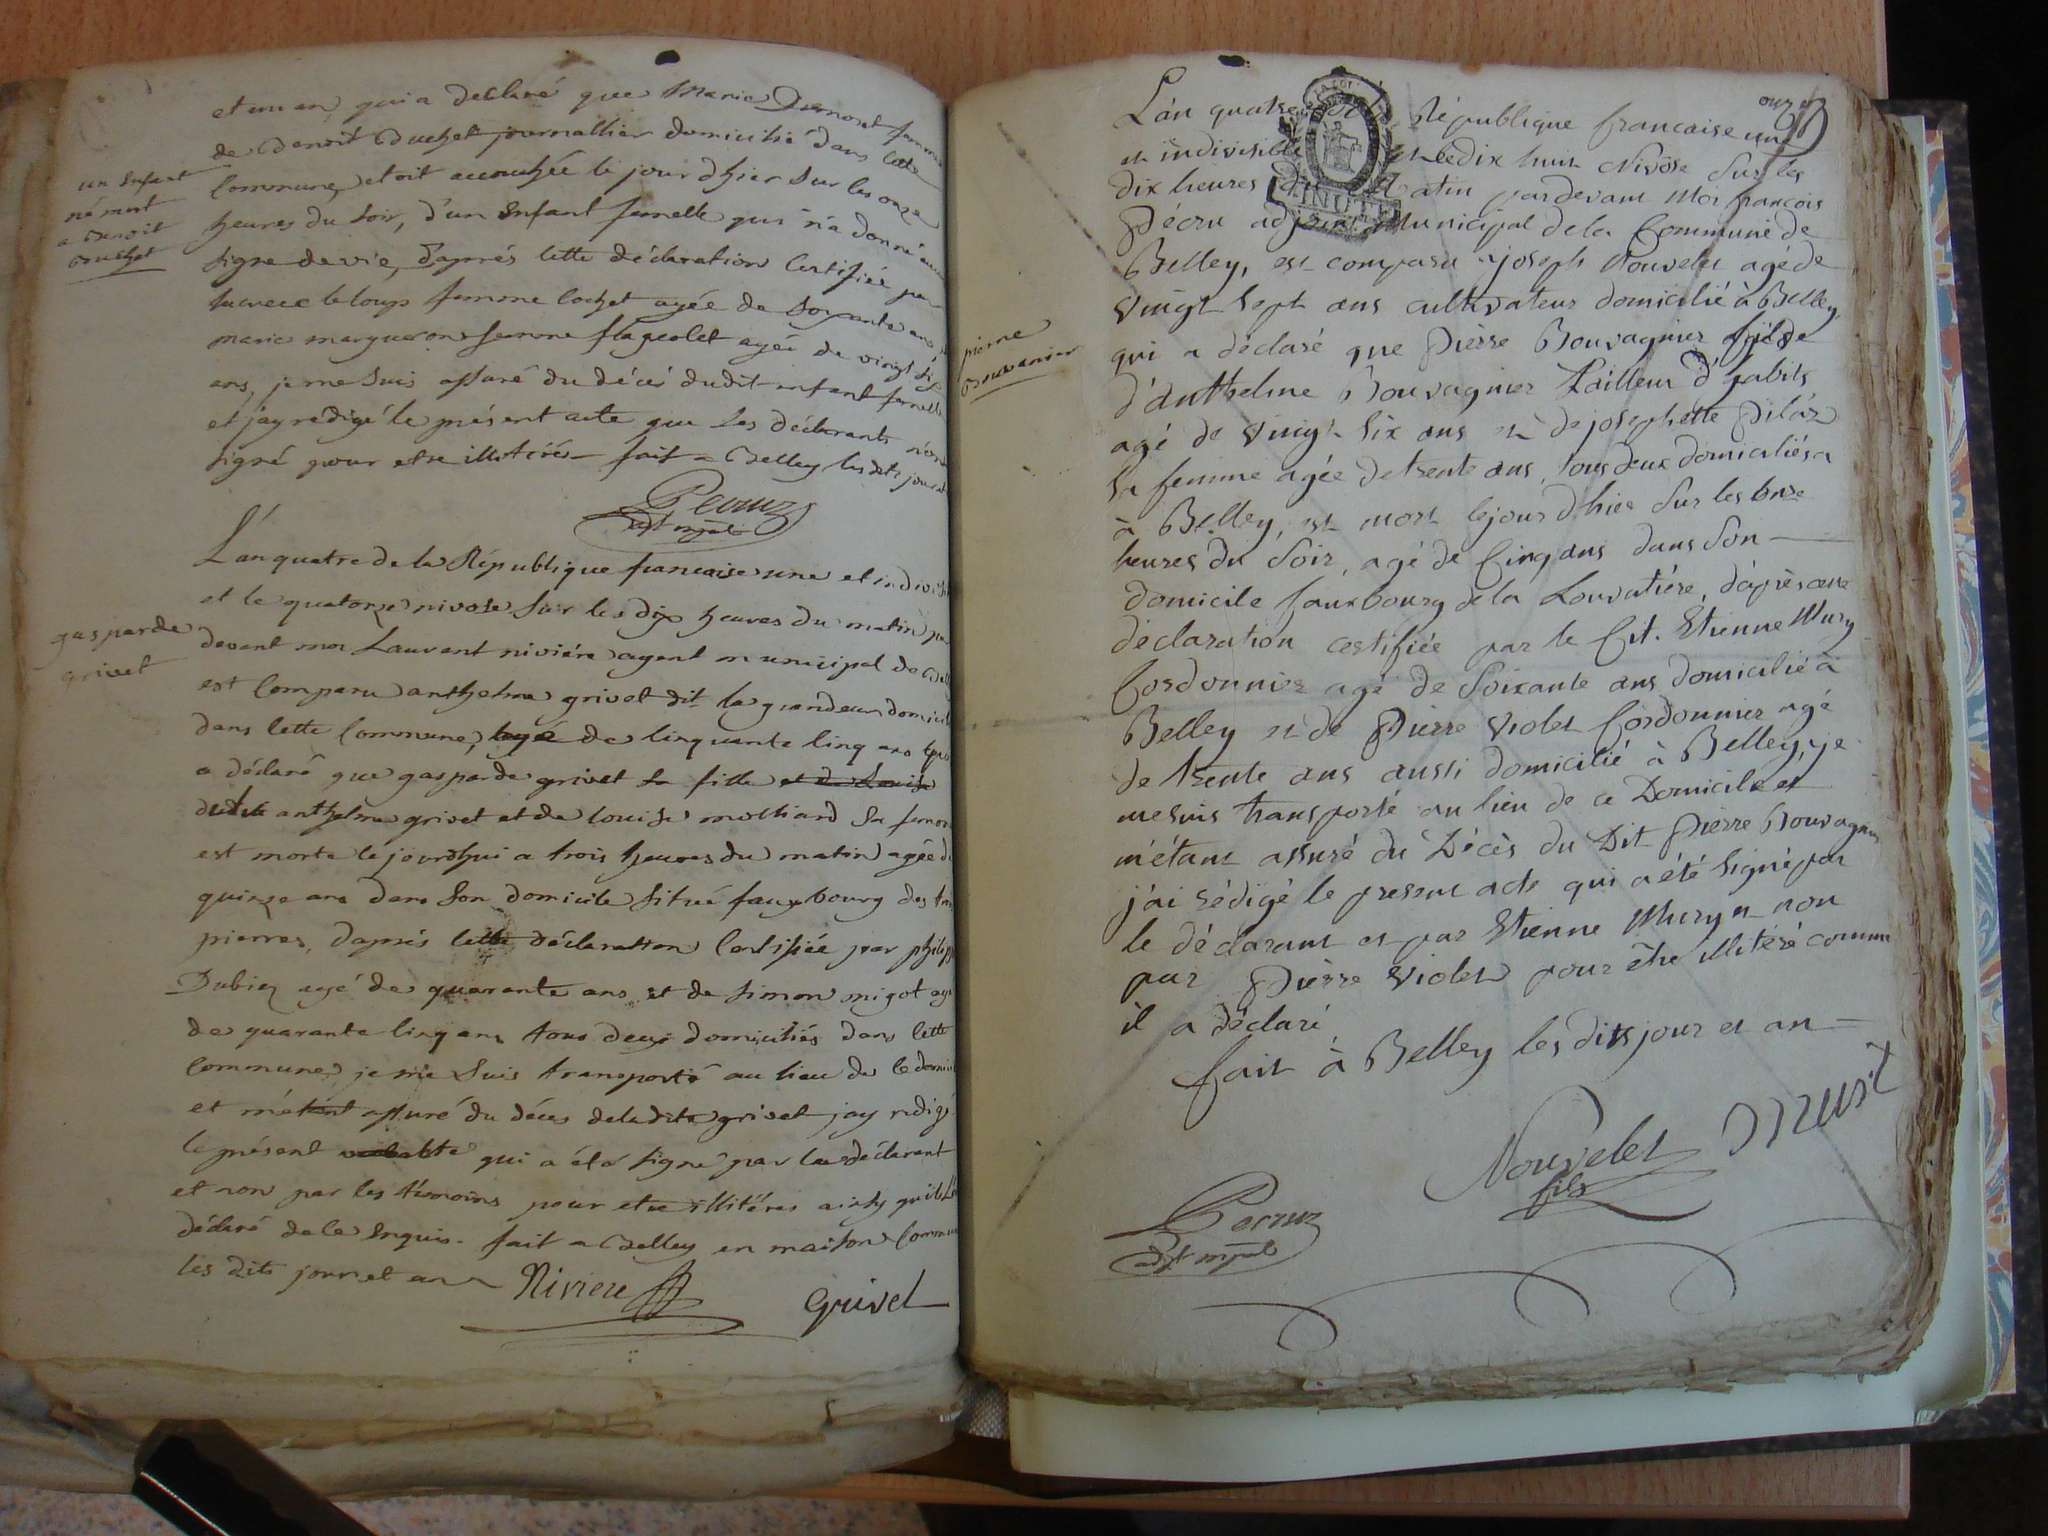 et un an, qui a declaré que Marie Dumoret femme
de Benoit Buchet journallier domicilié dans cette
Commune, etoit accouchée le jour d'hier sur les onze
heures du soir, d'un Enfant femelle qui n'a donné aucun
signe de vie, d'aprés cette déclaration Certifiée par
femme Cochet agée de Soixante ans et
marie margueron femme flageolet agée de vingt six
ans, je me suis assuré du décés dudit enfant femelle
et j'ay redigé le présent acte que les déclarants n'ont
signé pour etre illitérés fait a Belley les dits jour et
un Enfant
né mort
a Benoit
Buchet
Pecruz
adjt mpal
L'an quatre de la République francaise une et indivisi
et le quatorze nivose sur les dix heures du matin par
devant moi Laurent niviére agent municipal de Bell
est Comparu anthelme grivet dit la grandeur domicil
dans cette Commune, agé de Cinquante Cinq ans qui
a déclaré que gasparde grivet sa fille et de Louise
dudit anthelme grivet et de louise molliard sa femme
est morte le jourd'hui a trois heures du matin agée de
quinze ans dans son domicile situé fauxbourg des trois
pierres, d'aprés cette déclaration Certifiée par philipp
Dubiez agé de quarante ans et de simon migot agé
de quarante Cinq ans tous deux domiciliés dans cette
Commune, je me suis transporté au lieu de ce domici
et m'etant assuré du déces de la dite grivet j'ay redigé
le présent acte qui a été signé par le déclarant
et non par les témoins pour etre illitérés ainsy qu'ils l'ont
déclaré de ce Enquis. fait a Belley en maison Commune
les dits jour et an
gasparde
grivet
Niviere
Grivet
onze
L'an quatre de la République francaise une
et indivisible et le dix huit Nivôse sur les
dix heures du matin pardevant Moi françois
Pécru adjoint Municipal de la Commune de
Belley, est comparu joseph Nouvelet agé de
vingt sept ans cultivateur domicilié à Belley,
qui a déclaré que Pierre Bouvagnier fils de
d'Anthelme Bouvagnier Tailleur d'habits
agé de vingt six ans et de josephette Piláz
sa femme agée de trente ans, tous deux domiciliés a
à Belley, est mort le jour d'hier sur les onze
heures du soir, agé de Cinq ans dans son
domicile fauxbourg de la Louvatiére, d'après cette
déclaration certifiée par le Cit. Etienne Mury
Cordonnier agé de Soixante ans domicilié à
Belley et de Pierre Violet Cordonnier agé
de trente ans aussi domicilié à Belley, je
me suis transporté au lieu de ce Domicile et
m'étant assuré du Décès du Dit Pierre Bouvagnier
j'ai rédigé le present acte qui a été signé par
le déclarant et par Etienne Mury et non
par Pierre Violet pour être illitéré comme
il a déclaré
fait à Belley les dits jour et an
pierre
Bouvanier
Nouvelet
fils
Murit
Pecruz
adjt mpal
MINUTE